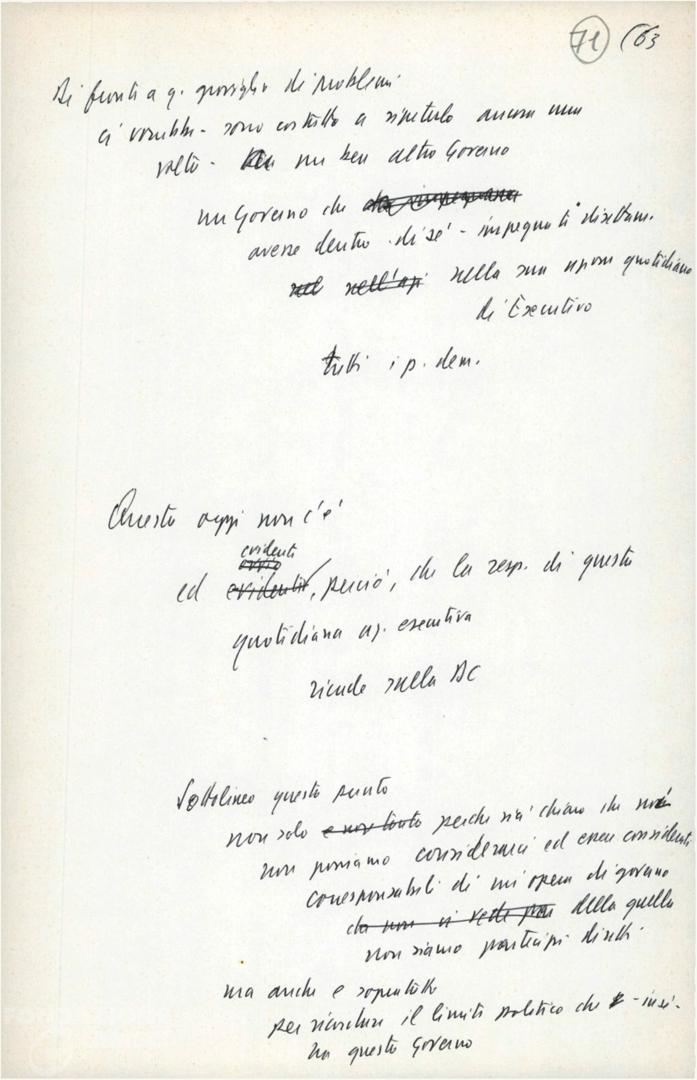 71 (63
Di fronte a q. groviglio di problemi
ci vorrebbe - sono costretto a ripeterlo ancora una
volta - un ben altro Governo
un Governo che
avesse dentro di sé - impegnati direttam.
nel nell'az nella sua opera quotidiana
di Esecutivo
tutti i p. dem.
Questo oggi non c'è
evidente
ovvio
ed evidente, perciò, che la resp. di questa
quotidiana az. esecutiva
ricade sulla DC
Sottolineo questo punto
non solo e non tanto perché sia chiaro che noi
non possiamo considerarci ed essere considerati
corresponsabili di un'opera di governo
della quella
non siamo partecipi diretti
ma anche e soprattutto
per ricordare il limite politico che - insi-
ha questo Governo